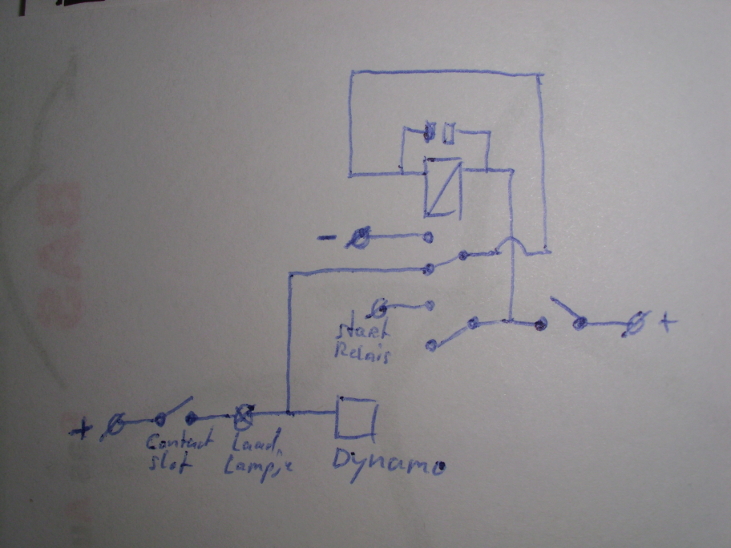 -
start
Relais
+
+
Contact
slot
Laad
Lampje
Dynamo